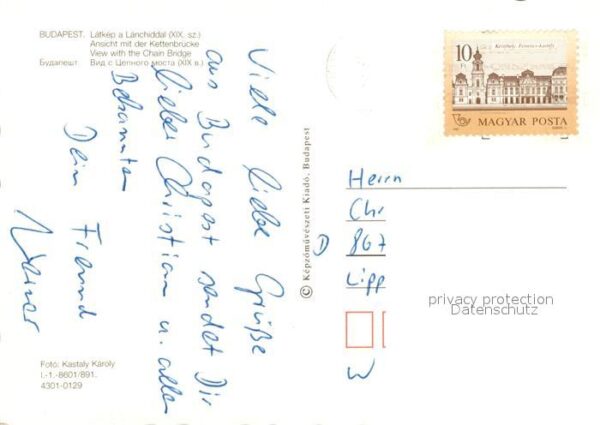 BUDAPEST. Látkép a Lánchiddal (XIX. sz.)
Ansicht mit der Kettenbrücke
View with the Chain Bridge
Будапешт. Вид с Цепного моста (XIX в.)
Viele liebe Grüße
aus Budapest sendet Dir
lieber Christian u. allen
Bekannten
Dein Freund
Foto: Kastaly Károly
I.-1.-8601/891.
4301-0129
© Képzőművészeti Kiadó, Budapest
10 Ft
Keszthely, Festetics-kastély
MAGYAR POSTA
Herrn
Chr
D 867
Lipp
W
privacy protection
Datenschutz